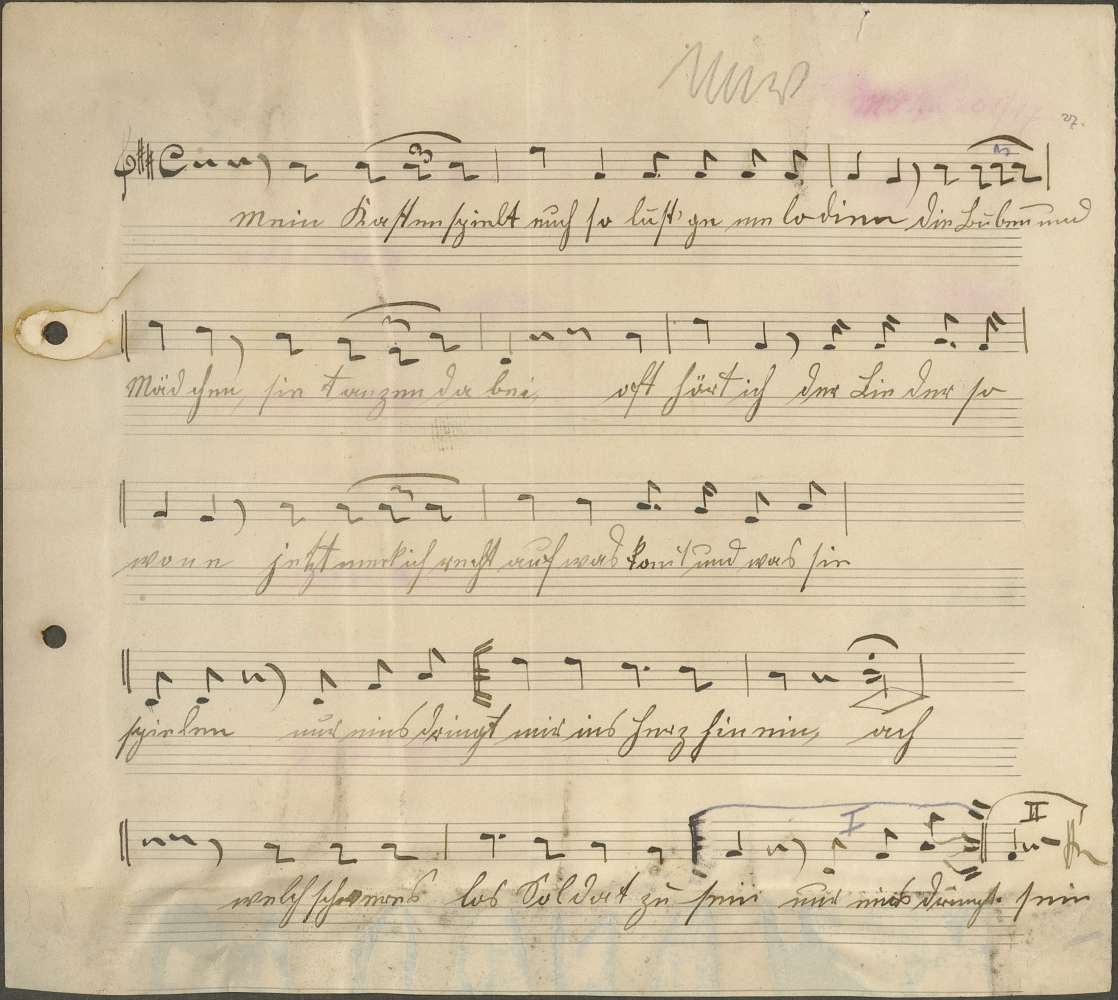 27.
3
mein Kasten spielt euch so lust'ge melodien die Buben und
3
Mädchen, sie tanzen da bei, oft hört ich der Lieder so
3
wone jetzt merk ich recht auf was komt und was sie
spielen nur eins dringt mir ins herz hin ein, ach
I II
welch schweres los Soldat zu sein nur eins dringt. sein